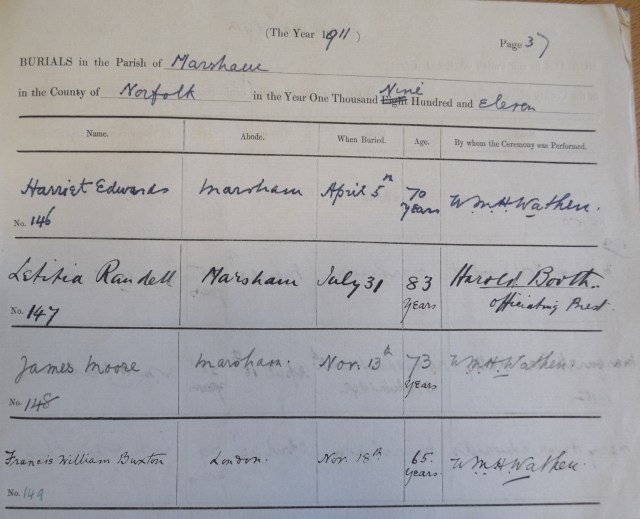 (The Year 1911)
Page 37
BURIALS in the Parish of Marsham
in the County of Norfolk in the Year One Thousand Eight Nine Hundred and Eleven
Name. Abode. When Buried. Age. By whom the Ceremony was Performed.
Harriet Edwards Marsham April 5th 70 years Wm. H. Wathen.
No. 146
Letitia Randell Marsham July 31 83 years Harold Booth. officiating Priest.
No. 147
James Moore Marsham. Nov. 13th 73 years Wm. H. Wathen
No. 148
Francis William Buxton London. Nov. 18th 65. years Wm. H. Wathen.
No. 149